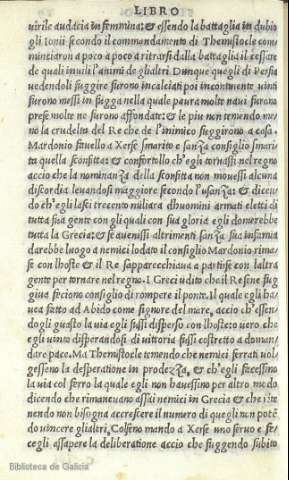 LIBRO
uirile audacia in femmina: & essendo la battaglia in dubio
gli Ionii secondo il commandamento di Themistocle com
minciarono a poco a poco a ritrarsi dalla battaglia il cessare
de quali inuilì l'animi de gli altri. Dunque quegli di Persia
uedendoli suggire furono incalciati poi incontinente uinti
furono messi in fugga nella quale paura molte naui furono
prese molte ne furono affondate: & le piu non temendo me
no la crudelta del Re che de l'inimico fuggirono a casa.
Mardonio fu uello a Xerse smarito e sanza consiglio smari
ta quella sconfitta: & confortollo ch'egli tornassi nel regno
accio che la nominanza della sconfitta non mouessi alcuna
discordia leuandosi maggiore secondo l'usanza: & dicen
do ch'egli lasci trecento miliara d'huomini armati eletti di
tutta sua gente con li quali con sua gloria egli domerebbe
tutta la Grecia: & se auenissi altrimenti sanza sua infamia
darebbe luogo a nemici lodato il consiglio Mardonio rima-
se con l'hoste & il Re s'apparecchiaua a partise con l'altra
gente per tornare nel regno. I Greci udito che il Re sene fug
giua feciono consiglio di rompere il ponte. Il quale egli ha
uea fatto ad Abido come signore del mare, accio ch'essen
dogli guasto la uia egli fussi disperso con l'hoste: o uero che
egli uinto disperandosi di uittoria fussi costretto a doman/
dare pace. Ma Themistocle temendo che nemici serrati uol
gesseno la desperatione in prodezza, & ch'egli facessino
la uia col ferro la quale egli non hauessino per altro modo
dicendo che rimaneuano assai nemici in Grecia & che ite
nendo non bisogna accrescere il numero di quegli non potẽ
do uincere gli altri. Costëno mando a Xerse uno seruo e fe-
cegli assapere la deliberatione accio che fuggendo subito
Biblioteca de Galicia